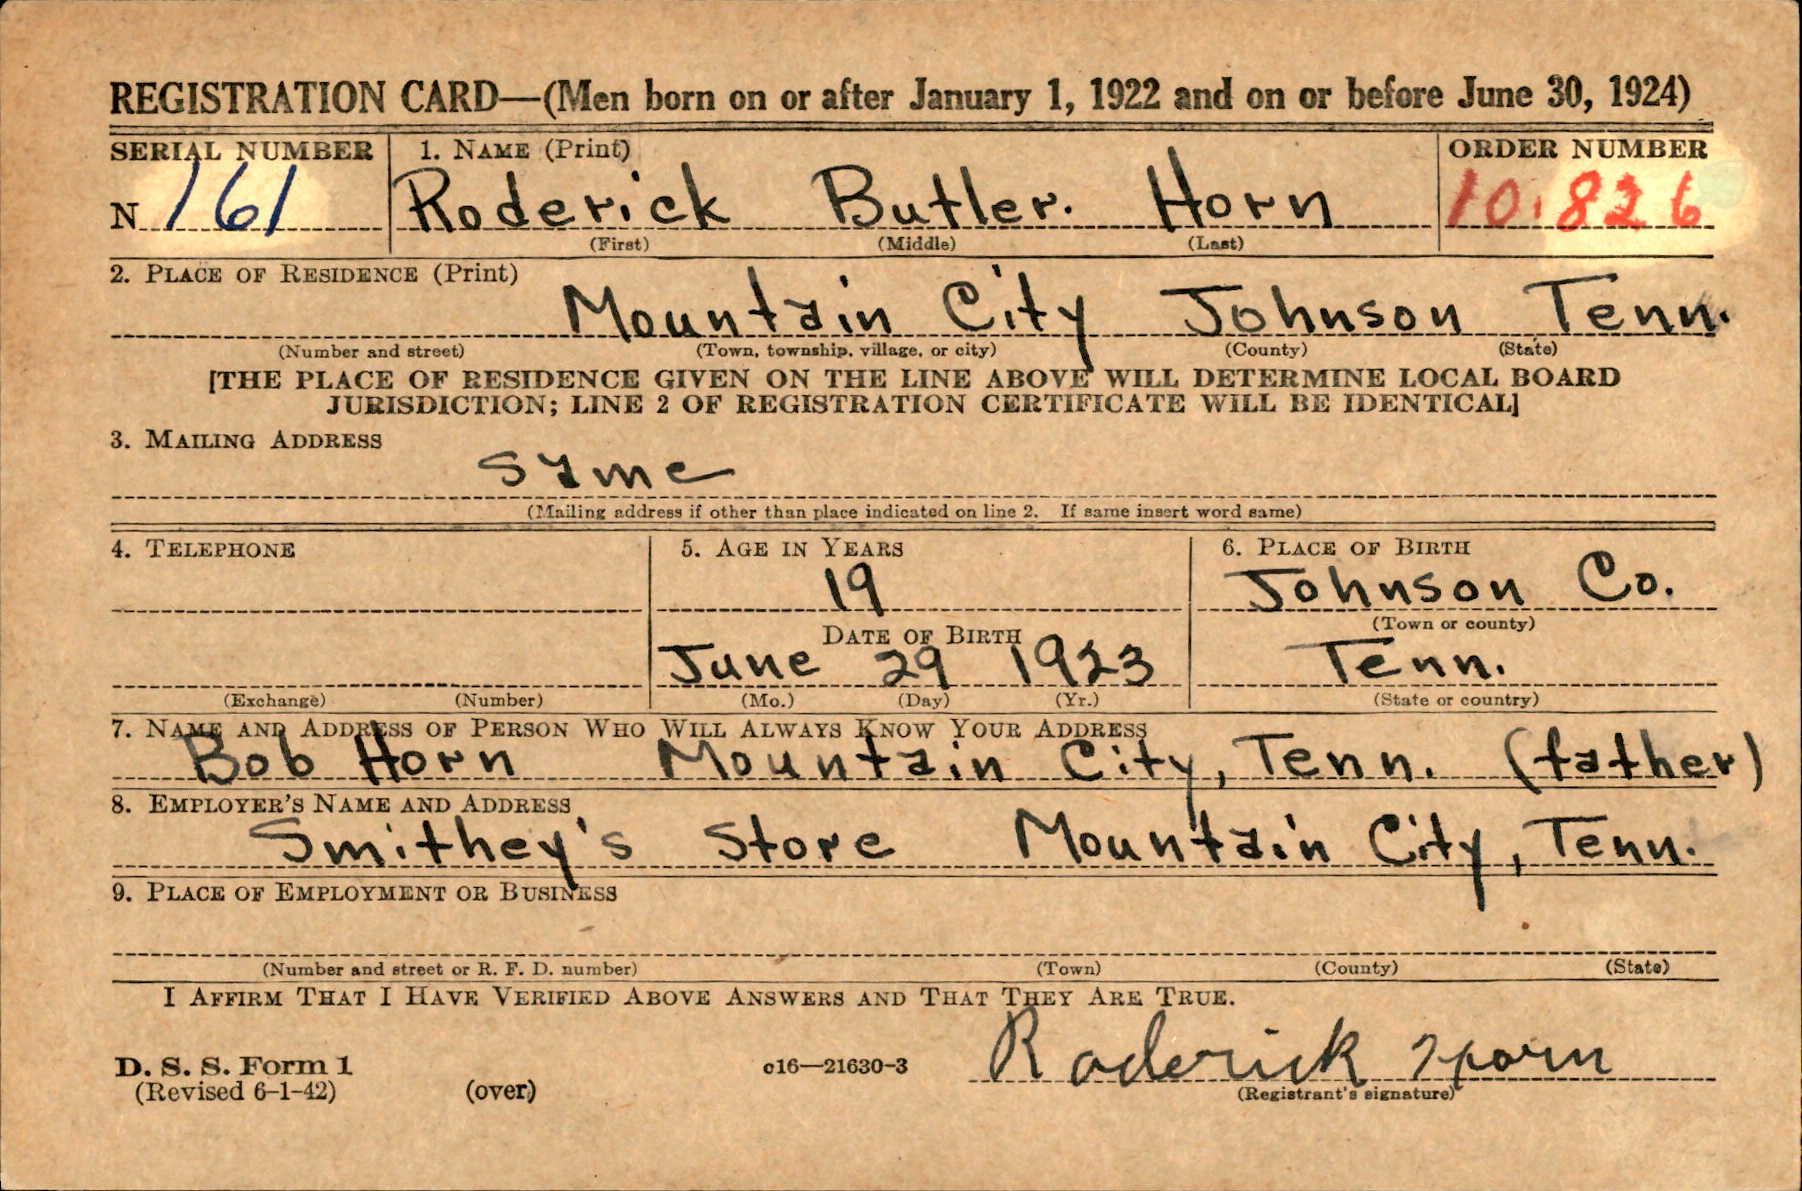 REGISTRATION CARD—(Men born on or after January 1, 1922 and on or before June 30, 1924)
SERIAL NUMBER 1. NAME (Print) ORDER NUMBER
N 161 Roderick Butler. Horn 10,826
(First) (Middle) (Last)
2. PLACE OF RESIDENCE (Print)
Mountain City Johnson Tenn.
(Number and street) (Town, township, village, or city) (County) (State)
[THE PLACE OF RESIDENCE GIVEN ON THE LINE ABOVE WILL DETERMINE LOCAL BOARD
JURISDICTION; LINE 2 OF REGISTRATION CERTIFICATE WILL BE IDENTICAL]
3. MAILING ADDRESS
Same
(Mailing address if other than place indicated on line 2. If same insert word same)
4. TELEPHONE 5. AGE IN YEARS 6. PLACE OF BIRTH
19 Johnson Co.
DATE OF BIRTH (Town or county)
June 29 1923 Tenn.
(Exchange) (Number) (Mo.) (Day) (Yr.) (State or country)
7. NAME AND ADDRESS OF PERSON WHO WILL ALWAYS KNOW YOUR ADDRESS
Bob Horn Mountain City, Tenn. (father)
8. EMPLOYER'S NAME AND ADDRESS
Smithey's Store Mountain City, Tenn.
9. PLACE OF EMPLOYMENT OR BUSINESS
(Number and street or R. F. D. number) (Town) (County) (State)
I AFFIRM THAT I HAVE VERIFIED ABOVE ANSWERS AND THAT THEY ARE TRUE.
D. S. S. Form 1 c16—21630-3 Roderick Horn
(Revised 6-1-42) (over) (Registrant's signature)